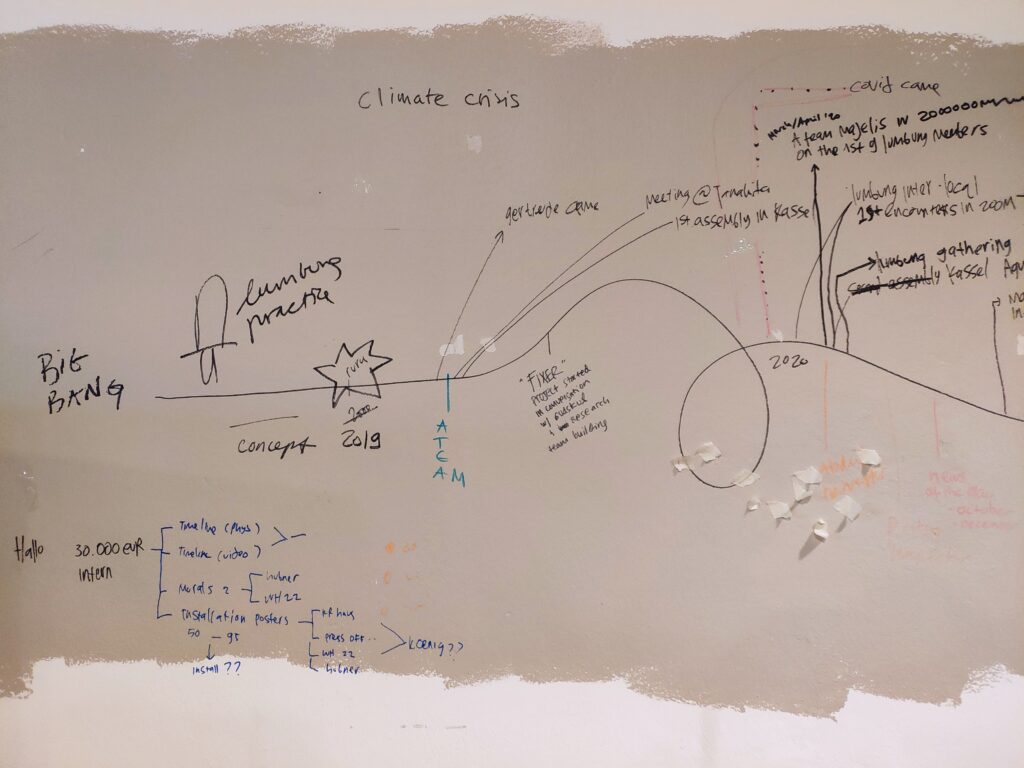 climate crisis
covid came
March/April '20
A team Majelis w 2000000M
on the 1st 9 lumbung members
gertrude came
meeting @
1st assembly in Kassel
lumbung inter-local
1st encounters in 200M
lumbung gathering
assembly Kassel
lumbung
practice
BIG
BANG
ruru
2019
concept
ATCAM
"FIXER"
project started
in conversation
w/ Gudskul
& research
team building
2020
news
of the day
October
December
Hallo
30.000 EUR
intern
Timeline (phys)
Timeline (video)
Murals 2
hubner
WH 22
Installation posters
50 - 95
install ??
press off..
WH 22
hubner
koenig??